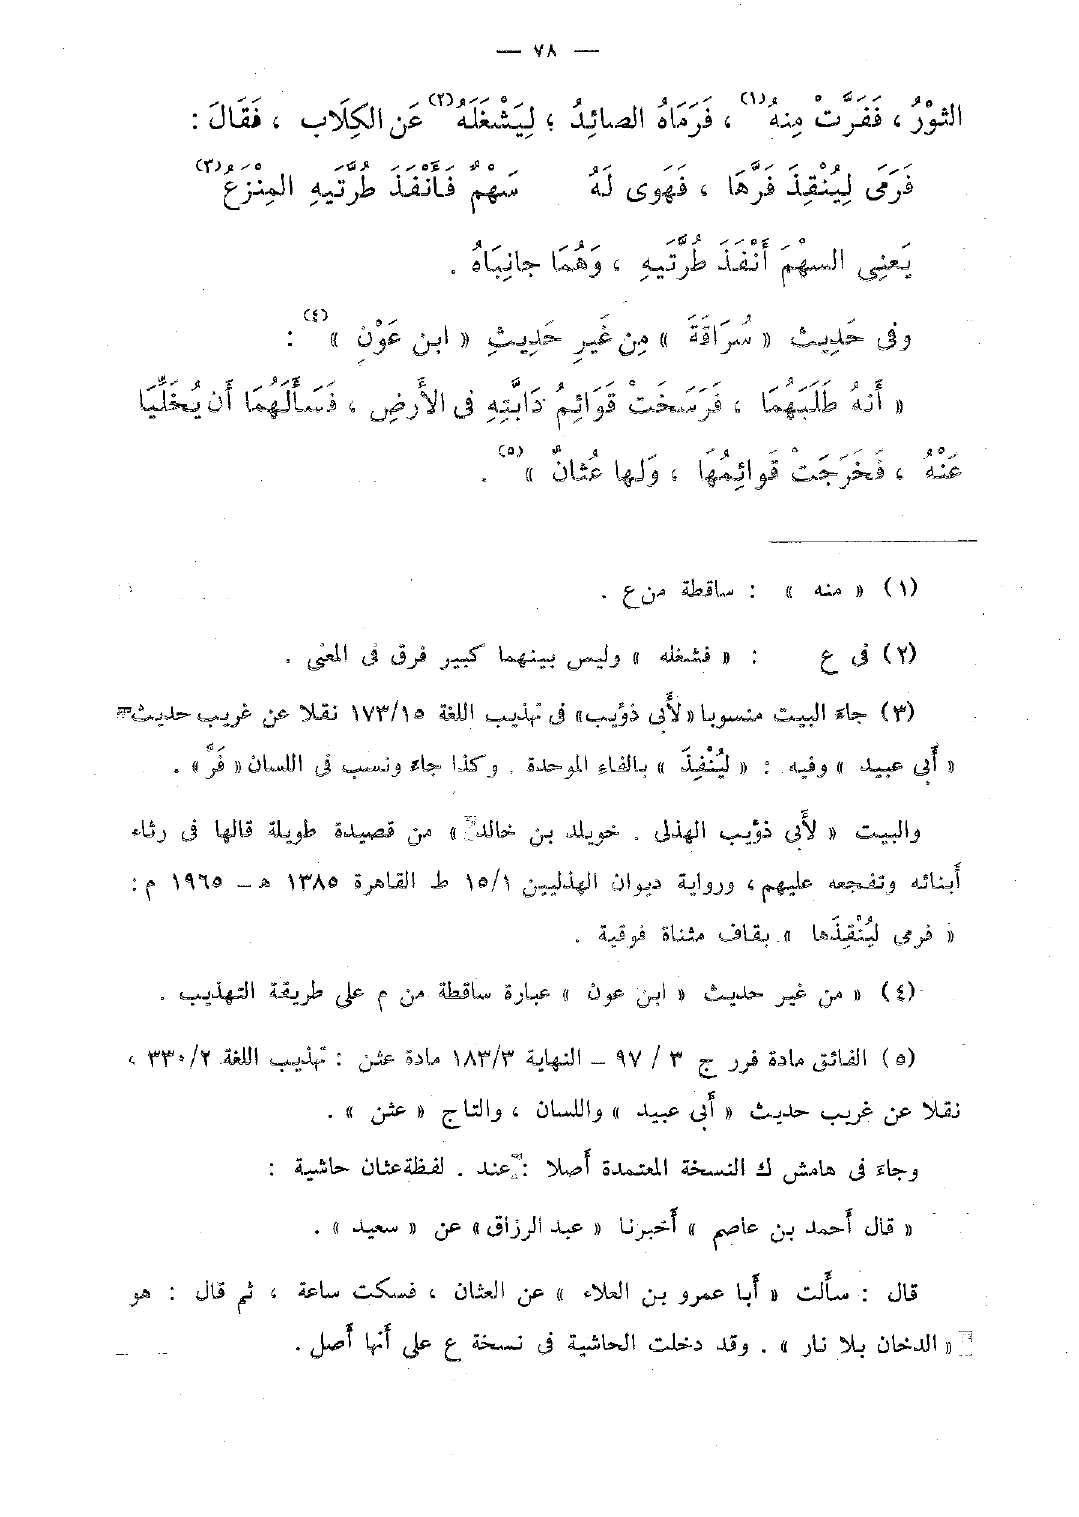 — ٧٨ —
الثوْرُ ، فَفَرَّتْ مِنهُ(١) ، فَرَمَاهُ الصائِدُ ؛ لِيَشْغَلَهُ(٢) عَن الكِلَاب ، فَقَالَ :
فَرَمَى لِيُنْقِذَ فَرَّهَا ، فَهَوى لَهُ سَهْمٌ فَأَنْفَذَ طُرَّتَيهِ المِنْزَعُ(٣)
يَعنِى السهْمَ أَنْفَذَ طُرَّتَيهِ ، وَهُمَا جانِبَاهُ .
وفى حَدِيث « سُرَاقَةَ » مِن غَيرِ حَدِيثِ « ابن عَوْنٍ »(٤) :
« أَنهُ طَلَبَهُمَا ، فَرَسَخَتْ قَوَائِمُ دَابَّتِهِ فى الأَرضِ ، فَسَأَلَهُمَا أَن يُخَلِّيَا
عَنْهُ ، فَخَرَجَتْ قَوائِمُهَا ، وَلها عُثانٌ »(٥) .
(١) « منه » : ساقطة من ع .
(٢) فى ع : « فشغله » وليس بينهما كبير فرق فى المعنى .
(٣) جاء البيت منسوبا «لأَبى ذؤيب» فى تهذيب اللغة ١٧٣/١٥ نقلا عن غريب حديث
« أَبى عبيد » وفيه : « لِيُنْفِذَ » بالفاء الموحدة . وكذا جاء ونسب فى اللسان « فَرَّ » .
والبيت « لأَبى ذؤيب الهذلى . خويلد بن خالد » من قصيدة طويلة قالها فى رثاء
أَبنائه وتفجعه عليهم ، ورواية ديوان الهذليين ١٥/١ ط القاهرة ١٣٨٥ هـ – ١٩٦٥ م :
« فرمى لِيُنْقِذَها » بقاف مثناة فوقية .
(٤) « من غير حديث « ابن عون » عبارة ساقطة من م على طريقة التهذيب .
(٥) الفائق مادة فرر ج ٣ / ٩٧ – النهاية ١٨٣/٣ مادة عثن : تهذيب اللغة ٣٣٠/٢ ،
نقلا عن غريب حديث « أَبى عبيد » واللسان ، والتاج « عثن » .
وجاء فى هامش ك النسخة المعتمدة أَصلا : عند . لفظة عثان حاشية :
« قال أَحمد بن عاصم » أَخبرنا « عبد الرزاق » عن « سعيد » .
قال : سأَلت « أَبا عمرو بن العلاء » عن العثان ، فسكت ساعة ، ثم قال : هو
« الدخان بلا نار » . وقد دخلت الحاشية فى نسخة ع على أَنها أَصل .